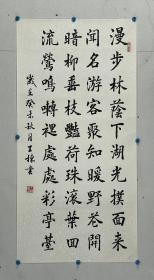 漫步林蔭下湖光撲面来
聞名游客聚知暖野花開
暗柳垂枝艷荷珠滚葉回
流鶯鳴轉裡處處彩亭臺
歲在癸未秋月王棟書